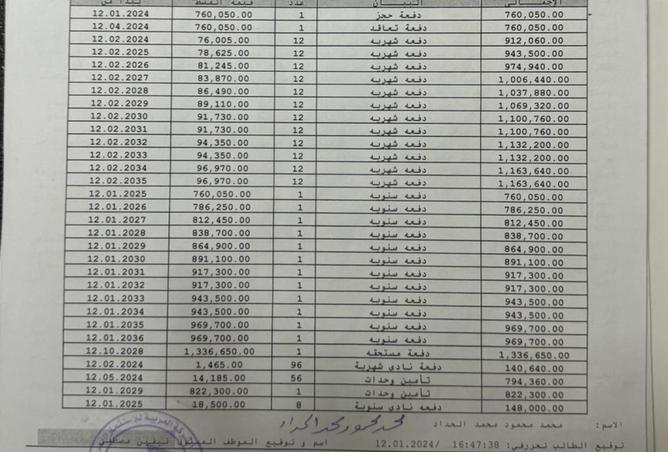 الإجمالي البيان عدد قيمة القسط
760,050.00 دفعة حجز 1 760,050.00 12.01.2024
760,050.00 دفعة تعاقد 1 760,050.00 12.04.2024
912,060.00 دفعه شهريه 12 76,005.00 12.02.2024
943,500.00 دفعه شهريه 12 78,625.00 12.02.2025
974,940.00 دفعه شهريه 12 81,245.00 12.02.2026
1,006,440.00 دفعه شهريه 12 83,870.00 12.02.2027
1,037,880.00 دفعه شهريه 12 86,490.00 12.02.2028
1,069,320.00 دفعه شهريه 12 89,110.00 12.02.2029
1,100,760.00 دفعه شهريه 12 91,730.00 12.02.2030
1,100,760.00 دفعه شهريه 12 91,730.00 12.02.2031
1,132,200.00 دفعه شهريه 12 94,350.00 12.02.2032
1,132,200.00 دفعه شهريه 12 94,350.00 12.02.2033
1,163,640.00 دفعه شهريه 12 96,970.00 12.02.2034
1,163,640.00 دفعه شهريه 12 96,970.00 12.02.2035
760,050.00 دفعه سنويه 1 760,050.00 12.01.2025
786,250.00 دفعه سنويه 1 786,250.00 12.01.2026
812,450.00 دفعه سنويه 1 812,450.00 12.01.2027
838,700.00 دفعه سنويه 1 838,700.00 12.01.2028
864,900.00 دفعه سنويه 1 864,900.00 12.01.2029
891,100.00 دفعه سنويه 1 891,100.00 12.01.2030
917,300.00 دفعه سنويه 1 917,300.00 12.01.2031
917,300.00 دفعه سنويه 1 917,300.00 12.01.2032
943,500.00 دفعه سنويه 1 943,500.00 12.01.2033
943,500.00 دفعه سنويه 1 943,500.00 12.01.2034
969,700.00 دفعه سنويه 1 969,700.00 12.01.2035
969,700.00 دفعه سنويه 1 969,700.00 12.01.2036
1,336,650.00 دفعة مستحقه 1 1,336,650.00 12.10.2028
140,640.00 دفعة نادي شهرية 96 1,465.00 12.02.2024
794,360.00 تأمين وحدات 56 14,185.00 12.05.2024
822,300.00 تأمين وحدات 1 822,300.00 12.01.2029
148,000.00 دفعه نادي سنوية 8 18,500.00 12.01.2025
الاسم: محمد محمود محمد الحداد محمد محمود محمد الحداد
توقيع الطالب تحرر في: 16:47:38 /12.01.2024 اسم و توقيع الموظف